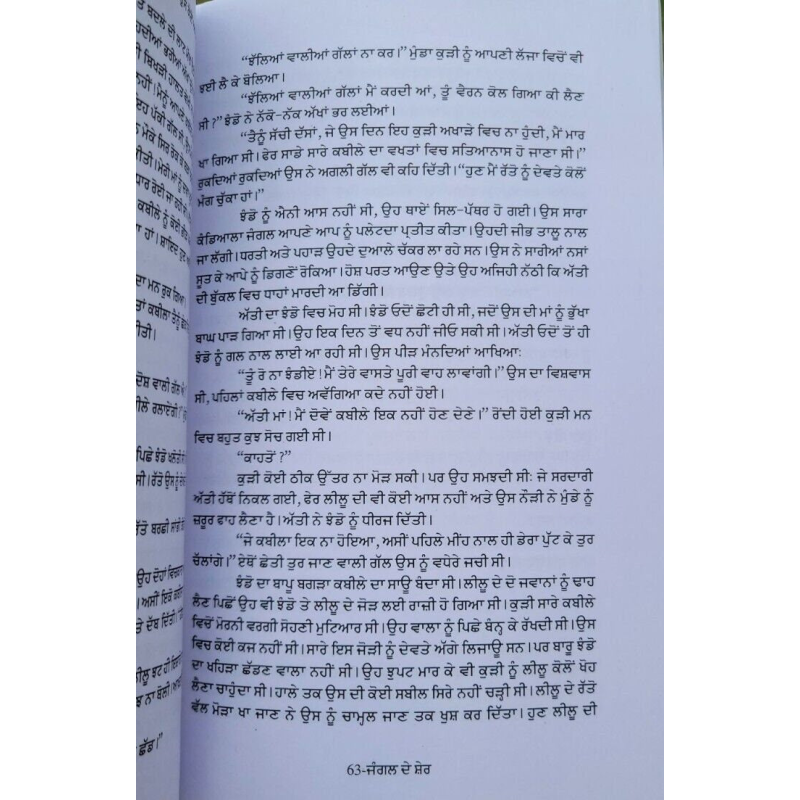 “ਝੱਲਿਆਂ ਵਾਲੀਆਂ ਗੱਲਾਂ ਨਾ ਕਰ।” ਮੁੰਡਾ ਕੁੜੀ ਨੂੰ ਆਪਣੀ ਲੱਜਾ ਵਿਚੋਂ ਵੀ
ਝਈ ਲੈ ਕੇ ਬੋਲਿਆ।
“ਝੱਲਿਆਂ ਵਾਲੀਆਂ ਗੱਲਾਂ ਮੈਂ ਕਰਦੀ ਆਂ, ਤੂੰ ਵੈਰਨ ਕੋਲ ਗਿਆ ਕੀ ਲੈਣ
ਸੀ ?” ਝੰਡੋ ਨੇ ਨੱਕੋ-ਨੱਕ ਅੱਖਾਂ ਭਰ ਲਈਆਂ।
“ਤੈਨੂੰ ਸੱਚੀ ਦੱਸਾਂ, ਜੇ ਉਸ ਦਿਨ ਇਹ ਕੁੜੀ ਅਖਾੜੇ ਵਿਚ ਨਾ ਹੁੰਦੀ, ਮੈਂ ਮਾਰ
ਖਾ ਗਿਆ ਸੀ। ਫੇਰ ਸਾਡੇ ਸਾਰੇ ਕਬੀਲੇ ਦਾ ਵਖਤਾਂ ਵਿਚ ਸਤਿਆਨਾਸ ਹੋ ਜਾਣਾ ਸੀ।”
ਰੁਕਦਿਆਂ ਰੁਕਦਿਆਂ ਉਸ ਨੇ ਅਗਲੀ ਗੱਲ ਵੀ ਕਹਿ ਦਿੱਤੀ। “ਹੁਣ ਮੈਂ ਰੱਤੋ ਨੂੰ ਦੇਵਤੇ ਕੋਲੋਂ
ਮੰਗ ਚੁੱਕਾ ਹਾਂ।”
ਝੰਡੋ ਨੂੰ ਐਨੀ ਆਸ ਨਹੀਂ ਸੀ, ਉਹ ਥਾਏਂ ਸਿਲ-ਪੱਥਰ ਹੋ ਗਈ। ਉਸ ਸਾਰਾ
ਕੰਡਿਆਲਾ ਜੰਗਲ ਆਪਣੇ ਆਪ ਨੂੰ ਪਲੇਟਦਾ ਪ੍ਰਤੀਤ ਕੀਤਾ। ਉਹਦੀ ਜੀਭ ਤਾਲੂ ਨਾਲ
ਜਾ ਲੱਗੀ। ਧਰਤੀ ਅਤੇ ਪਹਾੜ ਉਹਦੇ ਦੁਆਲੇ ਚੱਕਰ ਲਾ ਰਹੇ ਸਨ। ਉਸ ਨੇ ਸਾਰੀਆਂ ਨਸਾਂ
ਸੂਤ ਕੇ ਆਪੇ ਨੂੰ ਡਿਗਣੋਂ ਰੋਕਿਆ। ਹੋਸ਼ ਪਰਤ ਆਉਣ ਉਤੇ ਉਹ ਅਜਿਹੀ ਨੱਠੀ ਕਿ ਅੱਤੀ
ਦੀ ਬੁੱਕਲ ਵਿਚ ਧਾਹਾਂ ਮਾਰਦੀ ਆ ਡਿੱਗੀ।
ਅੱਤੀ ਦਾ ਝੰਡੋ ਵਿਚ ਮੋਹ ਸੀ। ਝੰਡੋ ਓਦੋਂ ਛੋਟੀ ਹੀ ਸੀ, ਜਦੋਂ ਉਸ ਦੀ ਮਾਂ ਨੂੰ ਭੁੱਖਾ
ਬਾਘ ਪਾੜ ਗਿਆ ਸੀ। ਉਹ ਇਕ ਦਿਨ ਤੋਂ ਵਧ ਨਹੀਂ ਜੀਓ ਸਕੀ ਸੀ। ਅੱਤੀ ਓਦੋਂ ਤੋਂ ਹੀ
ਝੰਡੋ ਨੂੰ ਗਲ ਨਾਲ ਲਾਈ ਆ ਰਹੀ ਸੀ। ਉਸ ਪੀੜ ਮੰਨਦਿਆਂ ਆਖਿਆ:
“ਤੂੰ ਰੋ ਨਾ ਝੰਡੀਏ! ਮੈਂ ਤੇਰੇ ਵਾਸਤੇ ਪੂਰੀ ਵਾਹ ਲਾਵਾਂਗੀ।” ਉਸ ਦਾ ਵਿਸ਼ਵਾਸ
ਸੀ, ਪਹਿਲਾਂ ਕਬੀਲੇ ਵਿਚ ਅਵੱਗਿਆ ਕਦੇ ਨਹੀਂ ਹੋਈ।
“ਅੱਤੀ ਮਾਂ! ਮੈਂ ਦੋਵੇਂ ਕਬੀਲੇ ਇਕ ਨਹੀਂ ਹੋਣ ਦੇਣੇ।” ਰੋਂਦੀ ਹੋਈ ਕੁੜੀ ਮਨ
ਵਿਚ ਬਹੁਤ ਕੁਝ ਸੋਚ ਗਈ ਸੀ।
“ਕਾਹਤੋਂ ?”
ਕੁੜੀ ਕੋਈ ਠੀਕ ਉੱਤਰ ਨਾ ਮੋੜ ਸਕੀ। ਪਰ ਉਹ ਸਮਝਦੀ ਸੀ: ਜੇ ਸਰਦਾਰੀ
ਅੱਤੀ ਹੱਥੋਂ ਨਿਕਲ ਗਈ, ਫੇਰ ਲੀਲੂ ਦੀ ਵੀ ਕੋਈ ਆਸ ਨਹੀਂ ਅਤੇ ਉਸ ਨੌੜੀ ਨੇ ਮੁੰਡੇ ਨੂੰ
ਜ਼ਰੂਰ ਵਾਹ ਲੈਣਾ ਹੈ। ਅੱਤੀ ਨੇ ਝੰਡੋ ਨੂੰ ਧੀਰਜ ਦਿੱਤੀ।
“ਜੇ ਕਬੀਲਾ ਇਕ ਨਾ ਹੋਇਆ, ਅਸੀਂ ਪਹਿਲੇ ਮੀਂਹ ਨਾਲ ਹੀ ਡੇਰਾ ਪੁੱਟ ਕੇ ਤੁਰ
ਚੱਲਾਂਗੇ।” ਏਥੋਂ ਛੇਤੀ ਤੁਰ ਜਾਣ ਵਾਲੀ ਗੱਲ ਉਸ ਨੂੰ ਵਧੇਰੇ ਜਚੀ ਸੀ।
ਝੰਡੋ ਦਾ ਬਾਪੂ ਬਗੜਾ ਕਬੀਲੇ ਦਾ ਸਾਊ ਬੰਦਾ ਸੀ। ਲੀਲੂ ਦੇ ਦੋ ਜਵਾਨਾਂ ਨੂੰ ਢਾਹ
ਲੈਣ ਪਿਛੋਂ ਉਹ ਵੀ ਝੰਡੋ ਤੇ ਲੀਲੂ ਦੇ ਜੋੜ ਲਈ ਰਾਜ਼ੀ ਹੋ ਗਿਆ ਸੀ। ਕੁੜੀ ਸਾਰੇ ਕਬੀਲੇ
ਵਿਚੋਂ ਮੋਰਨੀ ਵਰਗੀ ਸੋਹਣੀ ਮੁਟਿਆਰ ਸੀ। ਉਹ ਵਾਲਾ ਨੂੰ ਪਿਛੇ ਬੰਨ੍ਹ ਕੇ ਰੱਖਦੀ ਸੀ। ਉਸ
ਵਿਚ ਕੋਈ ਕਜ ਨਹੀਂ ਸੀ। ਸਾਰੇ ਇਸ ਜੋੜੀ ਨੂੰ ਦੇਵਤੇ ਅੱਗੇ ਲਿਜਾਊ ਸਨ। ਪਰ ਬਾਰੂ ਝੰਡੋ
ਦਾ ਖਹਿੜਾ ਛੱਡਣ ਵਾਲਾ ਨਹੀਂ ਸੀ। ਉਹ ਝੁਪਟ ਮਾਰ ਕੇ ਵੀ ਕੁੜੀ ਨੂੰ ਲੀਲੂ ਕੋਲੋਂ ਖੋਹ
ਲੈਣਾ ਚਾਹੁੰਦਾ ਸੀ। ਹਾਲੇ ਤਕ ਉਸ ਦੀ ਕੋਈ ਸਬੀਲ ਸਿਰੇ ਨਹੀਂ ਚੜ੍ਹੀ ਸੀ। ਲੀਲੂ ਦੇ ਰੱਤੋ
ਵੱਲ ਮੋੜਾ ਖਾ ਜਾਣ ਨੇ ਉਸ ਨੂੰ ਚਾਮ੍ਹਲ ਜਾਣ ਤਕ ਖੁਸ਼ ਕਰ ਦਿੱਤਾ। ਹੁਣ ਲੀਲੂ ਦੀ
63-ਜੰਗਲ ਦੇ ਸ਼ੇਰ